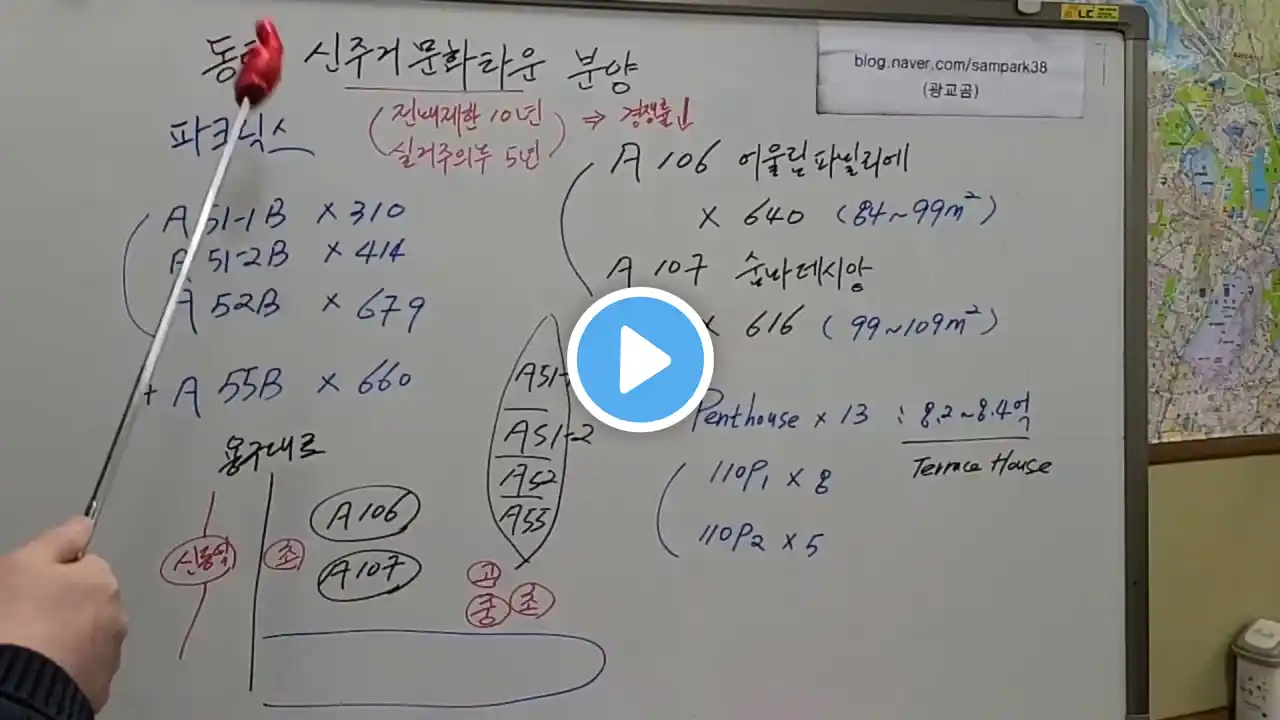 신주거문화타운 분양
blog.naver.com/sampark38
(광교곰)
파크닉스
(전매제한 10년
실거주의무 5년)
⇒ 경쟁률↓
A 106 어울림파밀리에
× 640 (84~99m²)
A 107 숨마데시앙
× 616 (99~109m²)
A 51-1B × 310
A 51-2B × 414
A 52B × 679
+ A 55B × 660
Penthouse × 13 : 8.2~8.4억
Terrace House
110P1 × 8
110P2 × 5
A51-
A51-2
A52
A55
용구대로
신동역
초
A106
A107
고
중
초
LC